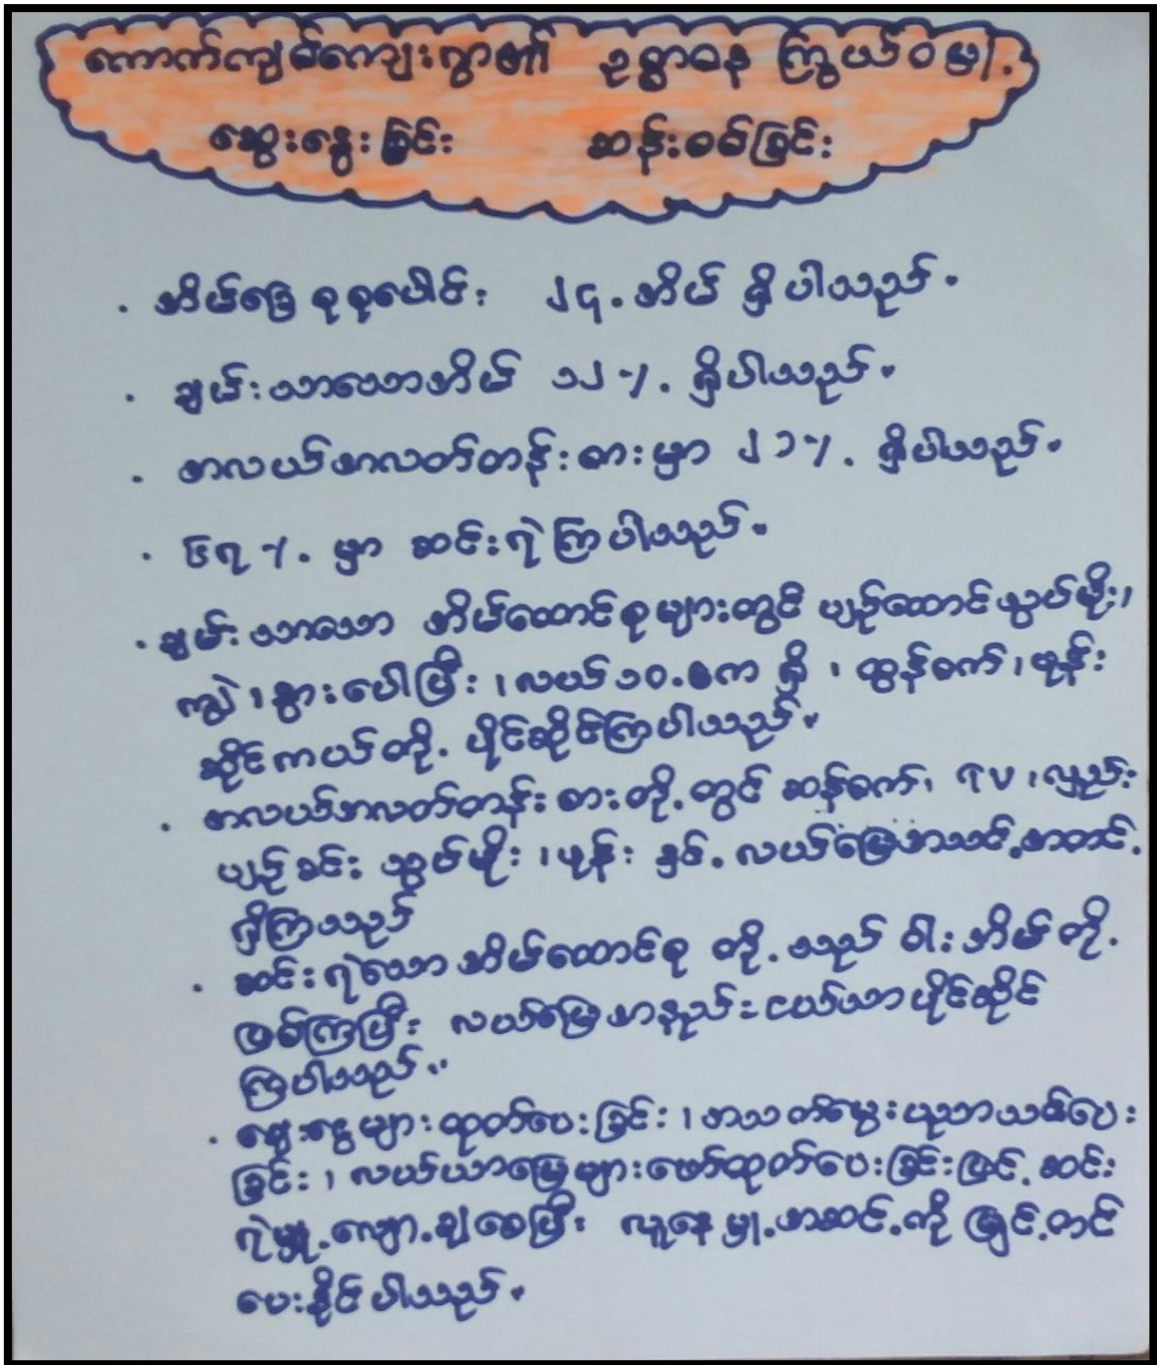 ကောက်ကျစ်ကျေးရွာ၏ ဥစ္စာဓန ကြွယ်ဝမှု့
ဆွေးနွေးခြင်း ဆန်းစစ်ခြင်း
• အိမ်ခြေ စုစုပေါင်း ၂၄.အိမ် ရှိပါသည်။
• ချမ်းသာသောအိမ် ၁၂%. ရှိပါသည်။
• အလယ်အလတ်တန်းစားမှာ ၂၁%. ရှိပါသည်။
• ၆၇%. မှာ ဆင်းရဲကြပါသည်။
• ချမ်းသာသော အိမ်ထောင်စုများတွင် ပျဉ်ထောင်သွပ်မိုး၊
ကျွဲ၊နွားပေါပြီး၊လယ်၁၀.ဧက ရှိ၊ ထွန်စက်၊ဖုန်း
ဆိုင်ကယ်တို့ ပိုင်ဆိုင်ကြပါသည်။
• အလယ်အလတ်တန်းစားတို့တွင် ဆန်စက်၊ TV၊လှည်း
ပျဉ်ခင်း သွပ်မိုး၊ဖုန်း နှင့် လယ်မြေအသင့်အတင့်
ရှိကြသည်
• ဆင်းရဲသောအိမ်ထောင်စု တို့သည် ဝါးအိမ်တို့
ဖြစ်ကြပြီး လယ်မြေအနည်းငယ်သာပိုင်ဆိုင်
ကြပါသည်။
• ချေးငွေများထုတ်ပေးခြင်း၊အသက်မွေးပညာသင်ပေး
ခြင်း၊လယ်ယာမြေများဖော်ထုတ်ပေးခြင်းဖြင့် ဆင်း
ရဲမှု့လျော့ချစေပြီး လူနေမှု့အဆင့်ကို မြှင့်တင်
ပေးနိုင်ပါသည်။